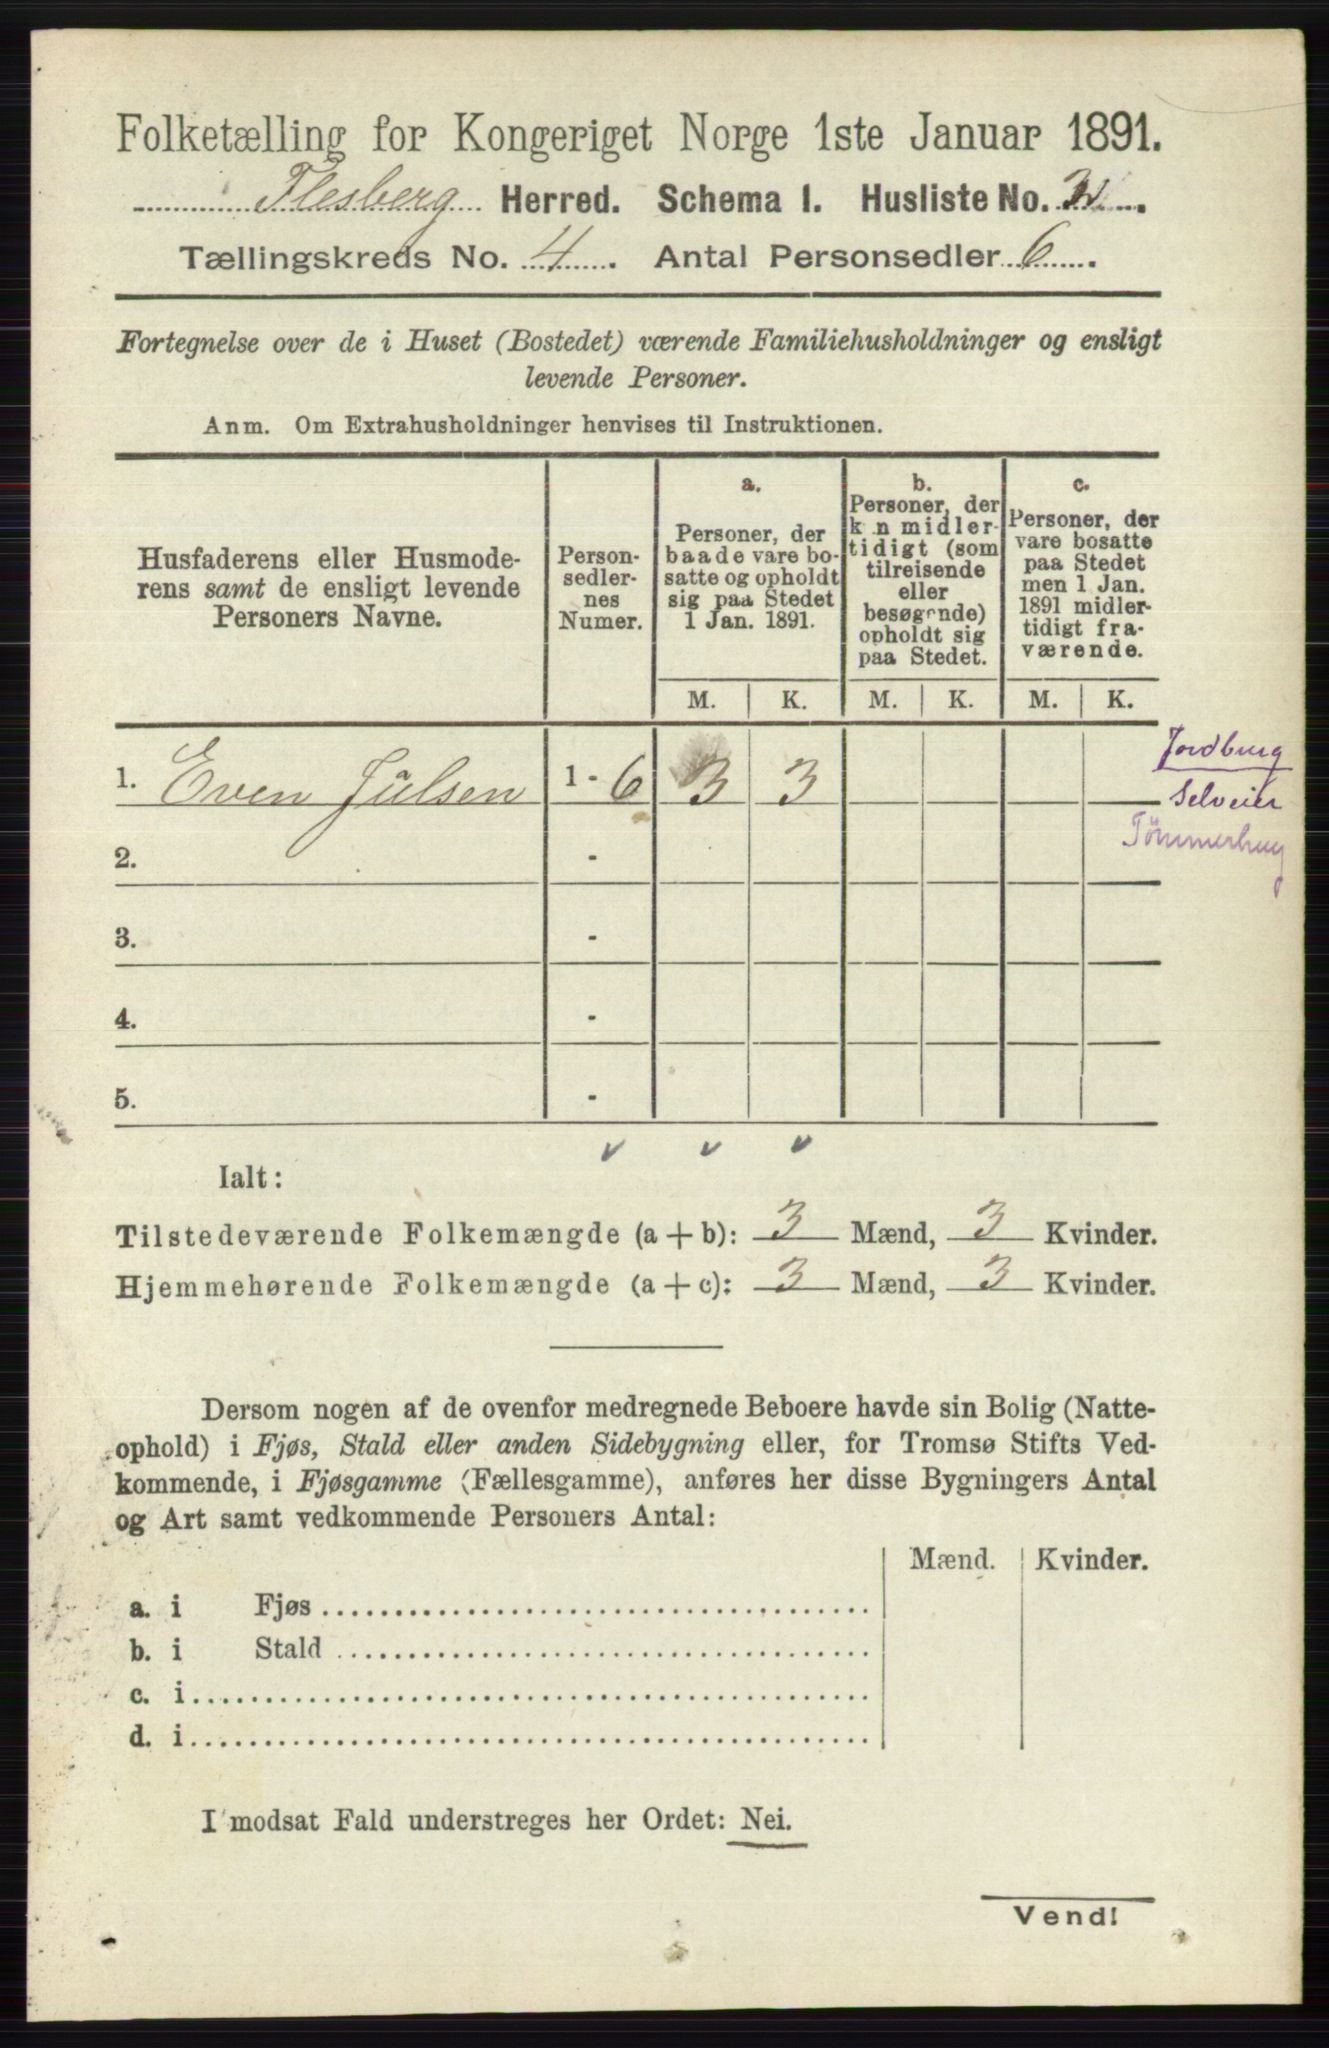 Folketælling for Kongeriget Norge 1ste Januar 1891.
Flesberg Herred. Schema 1. Husliste No.
Tællingskreds No. 4. Antal Personsedler 6.
Fortegnelse over de i Huset (Bostedet) værende Familiehusholdninger og ensligt
levende Personer.
Anm. Om Extrahusholdninger henvises til Instruktionen.
Husfaderens eller Husmode-
rens samt de ensligt levende
Personers Navne.
Person-
sedler-
nes
Numer.
a.
Personer, der
baade vare bo-
satte og opholdt
sig paa Stedet
1 Jan. 1891.
b.
Personer, der
k n midler-
tidigt (som
tilreisende
eller
besøgende)
opholdt sig
paa Stedet.
c.
Personer, der
vare bosatte
paa Stedet
men 1 Jan.
1891 midler-
tidigt fra-
værende.
M. K. M. K. M. K.
1. Even Julsen 1 - 6 3 3
Jordbrug
Selveier
Tömmerhug
2. -
3. -
4. -
5. -
v v v
Ialt:
Tilstedeværende Folkemængde (a + b): 3 Mænd, 3 Kvinder.
Hjemmehørende Folkemængde (a + c): 3 Mænd, 3 Kvinder.
Dersom nogen af de ovenfor medregnede Beboere havde sin Bolig (Natte-
ophold) i Fjøs, Stald eller anden Sidebygning eller, for Tromsø Stifts Ved-
kommende, i Fjøsgamme (Fællesgamme), anføres her disse Bygningers Antal
og Art samt vedkommende Personers Antal:
Mænd. Kvinder.
a. i Fjøs
b. i Stald
c. i
d. i
I modsat Fald understreges her Ordet: Nei.
Vend!